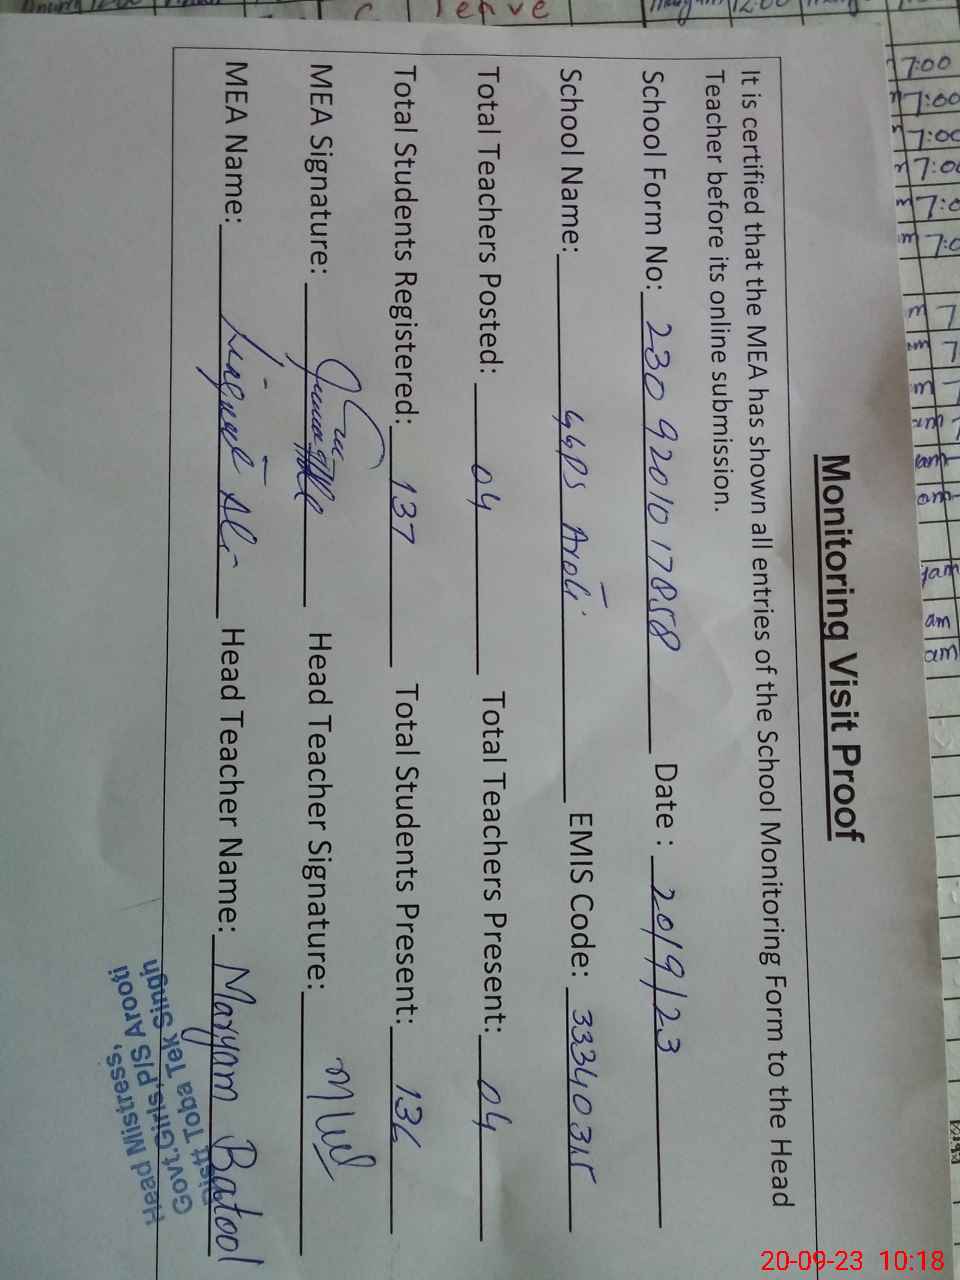 Monitoring Visit Proof
It is certified that the MEA has shown all entries of the School Monitoring Form to the Head
Teacher before its online submission.
School Form No: 230 92010 17858 Date : 20/9/23
School Name: GGPS Aroti EMIS Code: 33340315
Total Teachers Posted: 04 Total Teachers Present: 04
Total Students Registered: 137 Total Students Present: 136
MEA Signature: Head Teacher Signature:
MEA Name: Liaqat Ali Head Teacher Name: Maryam Batool
Head Mistress,
Govt.Girls,P/S Arooti
Distt. Toba Tek Singh
20-09-23 10:18